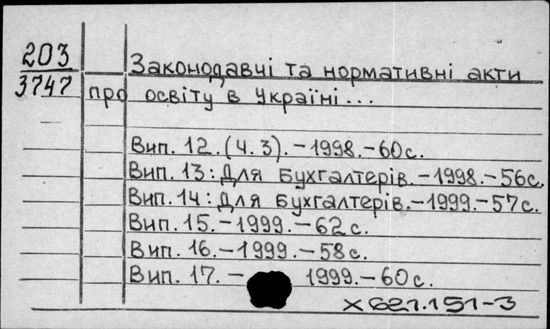 203
3747
Законодавчі та нормативні акти
про освіту в Україні...
Вип. 12. (ч. 3). - 1998. - 60 с.
Вип. 13: Для бухгалтерів. - 1998. - 56 с.
Вип. 14: Для бухгалтерів. - 1999. - 57 с.
Вип. 15. - 1999. - 62 с.
Вип. 16. - 1999. - 58 с.
Вип. 17. - 1999. - 60 с.
Х621.151-3